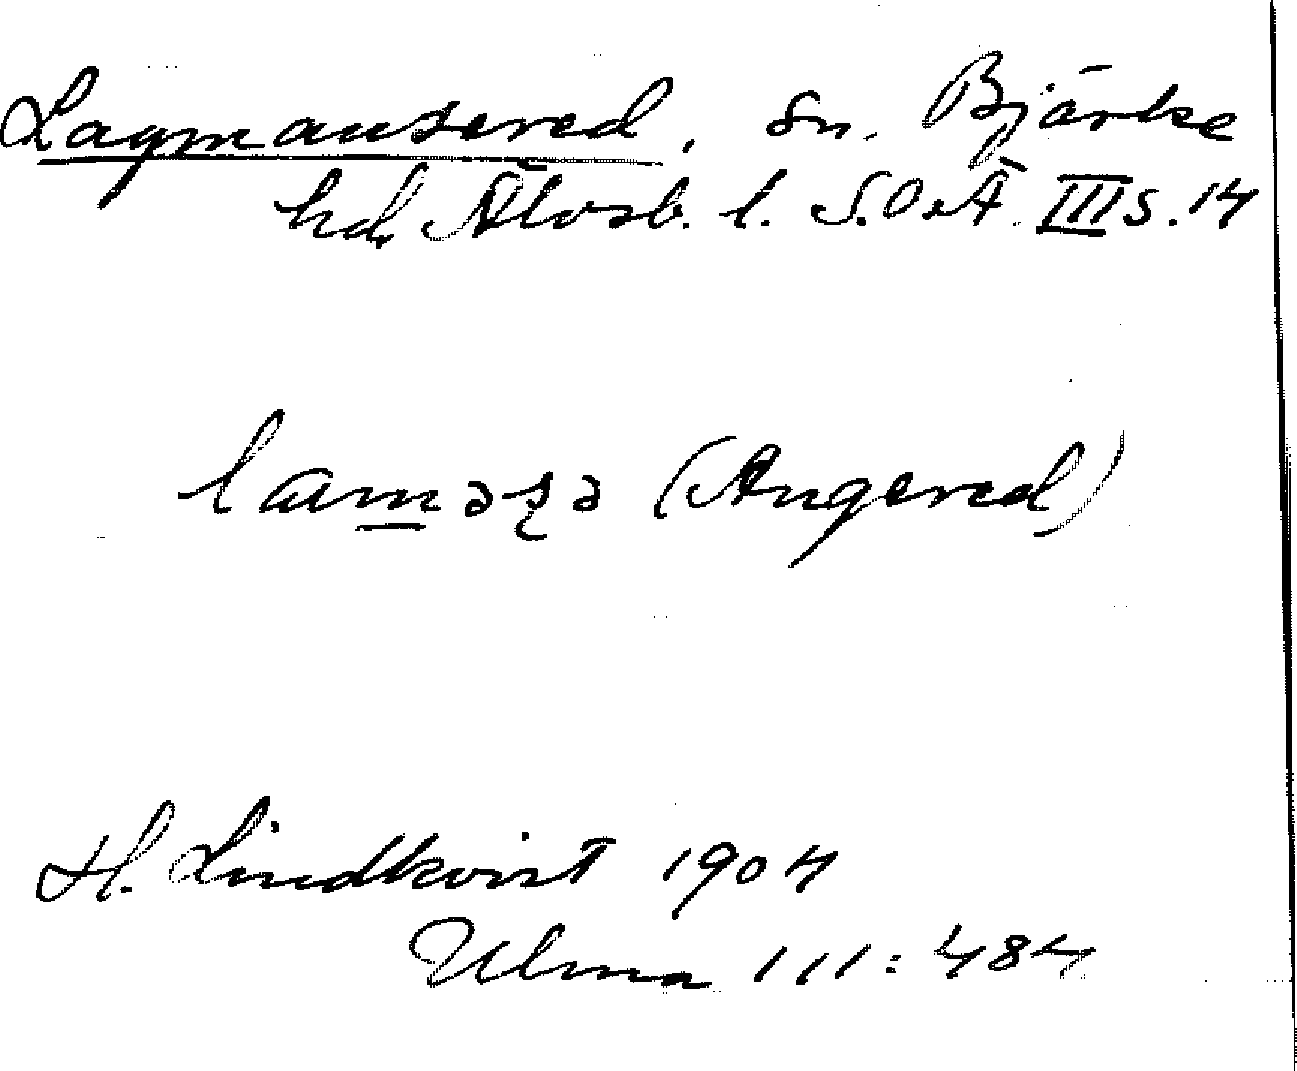 Lagmansered, sn. Bjärke
hd, Älvsb. l. S.O.Ä. III s. 14
(Angered)
H. Lindkvist 1904
Ulma 111:484